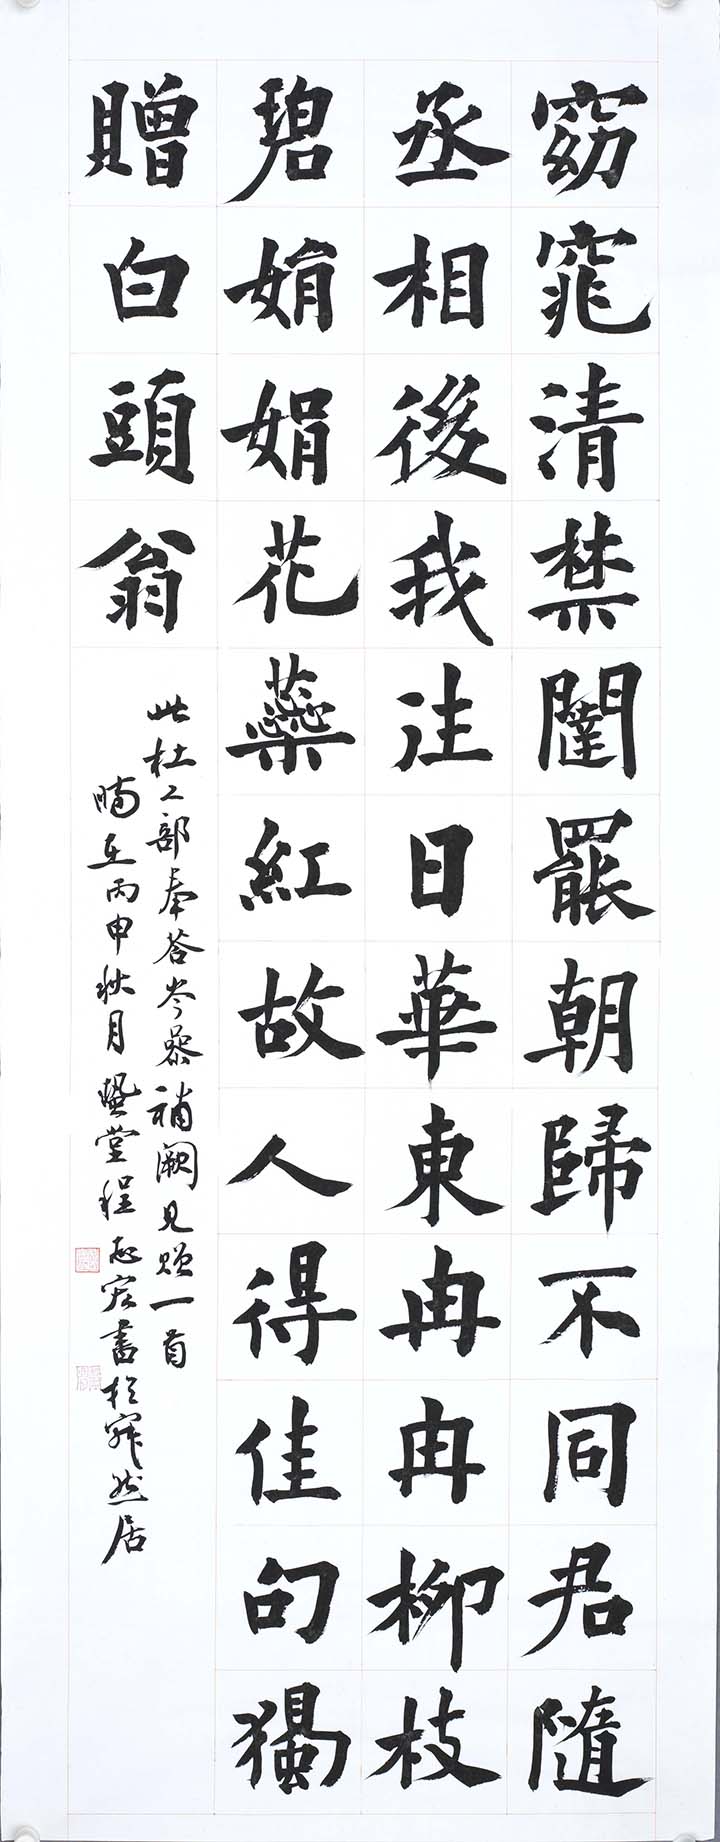 窈窕清禁闥罷朝歸不同君隨
丞相後我往日華東冉冉柳枝
碧娟娟花蘂紅故人得佳句獨
贈白頭翁
此杜工部奉荅岑參補闕見贈一首
在丙申秋月堂程志宏書於寂然居